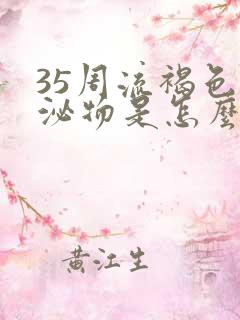 35周流褐色
泌物是怎麼
黄江生